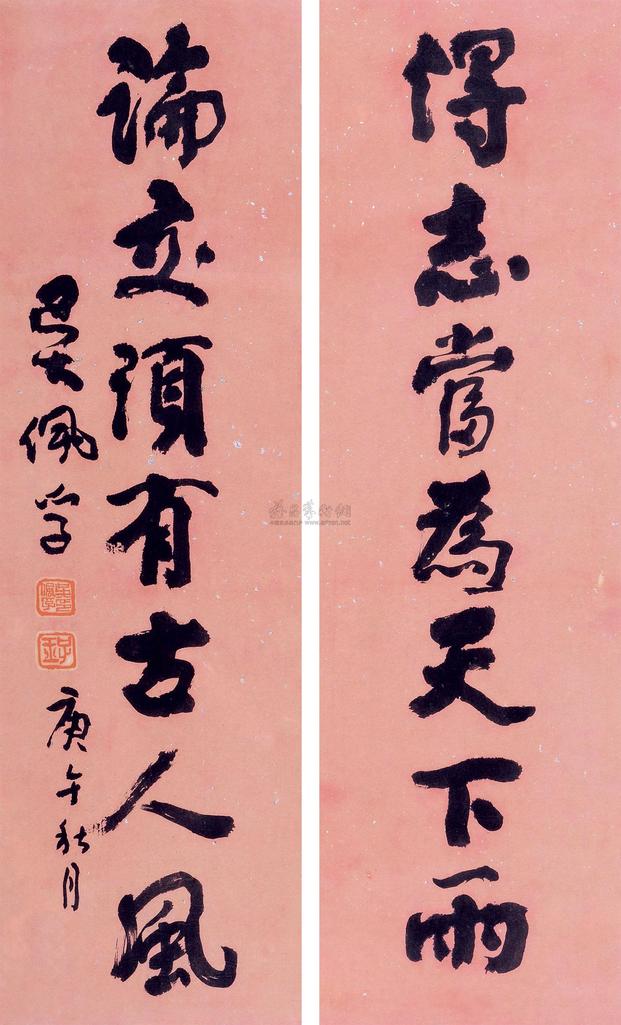 得志當為天下雨
論交須有古人風
吳佩孚
子玉
庚午秋月